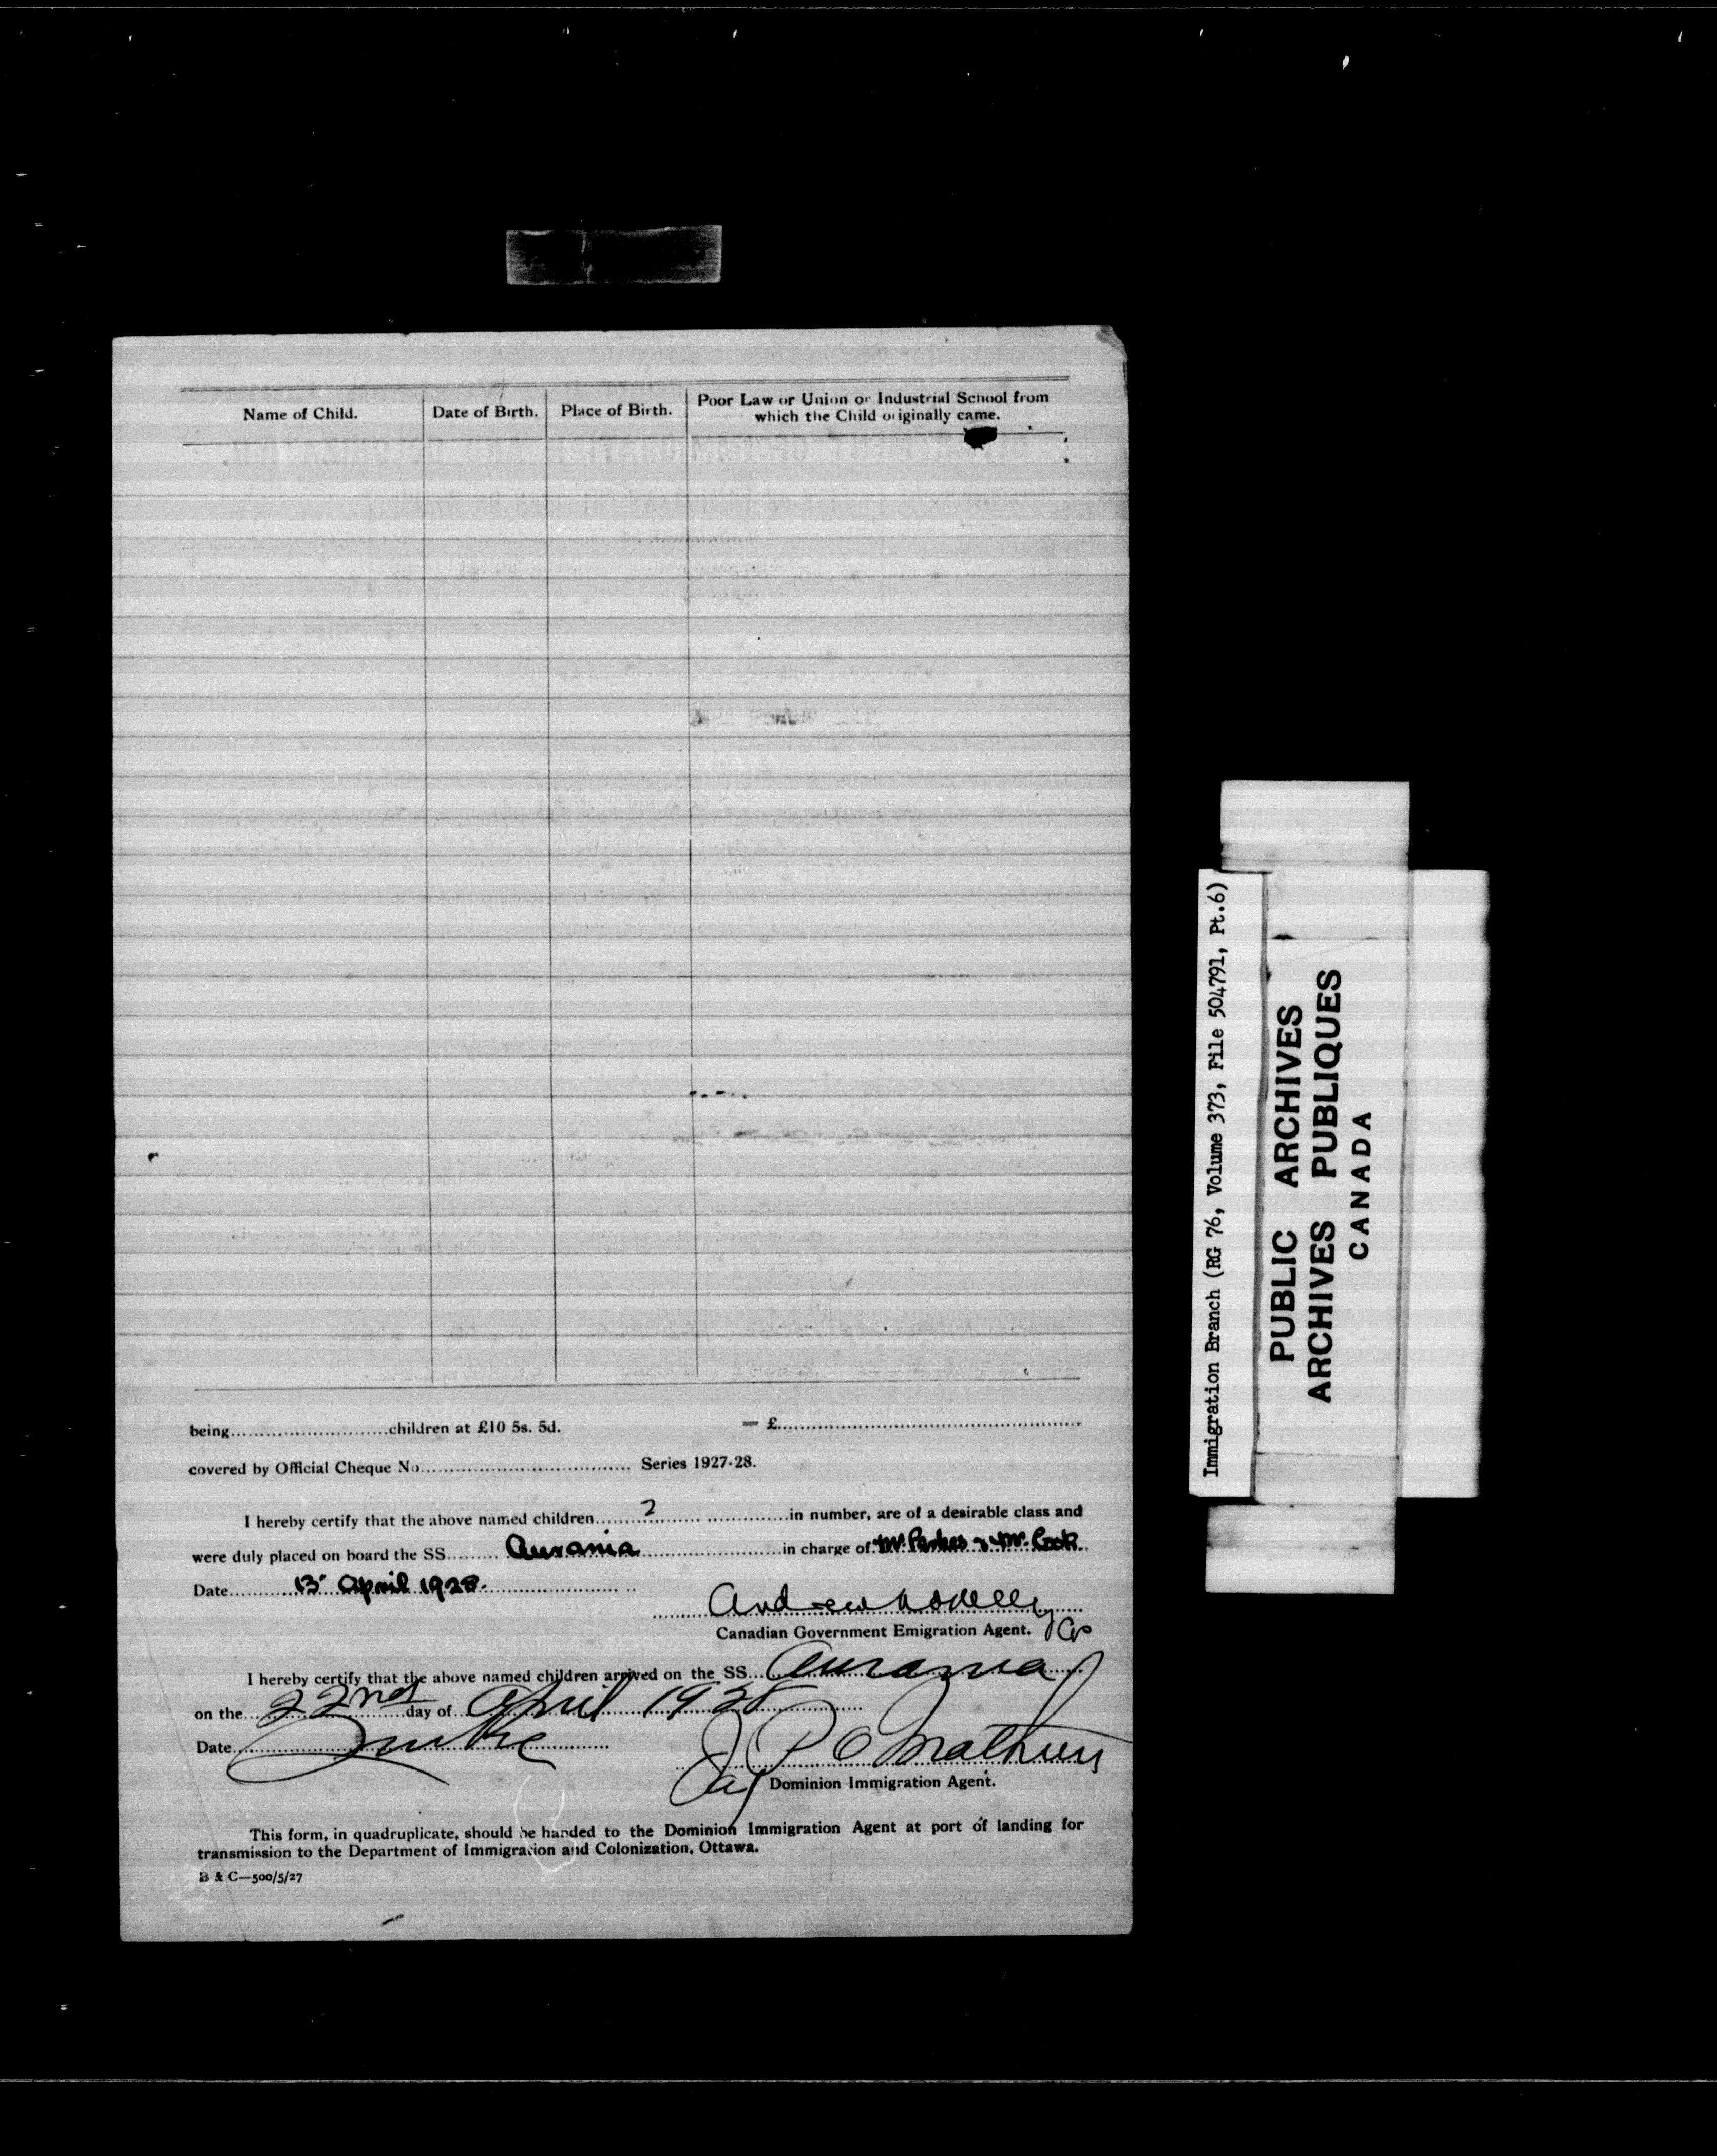 Name of Child.
Date of Birth.
Place of Birth.
Poor Law or Union or Industrial School from
which the Child originally came.
being..........children at £10 5s. 5d. — £..........
covered by Official Cheque No.......... Series 1927-28.
I hereby certify that the above named children 2 in number, are of a desirable class and
were duly placed on board the SS. Aurania in charge of Mr. Parkes & Mr. Cook.
Date 13 April 1928.
Andrew
Canadian Government Emigration Agent.
I hereby certify that the above named children arrived on the SS. Aurania
on the 22nd day of April 1928
Date
J P O Mathieu
Dominion Immigration Agent.
This form, in quadruplicate, should be handed to the Dominion Immigration Agent at port of landing for
transmission to the Department of Immigration and Colonization, Ottawa.
B & C—500/5/27
Immigration Branch (RG 76, Volume 373, File 504791, Pt.6)
PUBLIC ARCHIVES
ARCHIVES PUBLIQUES
CANADA